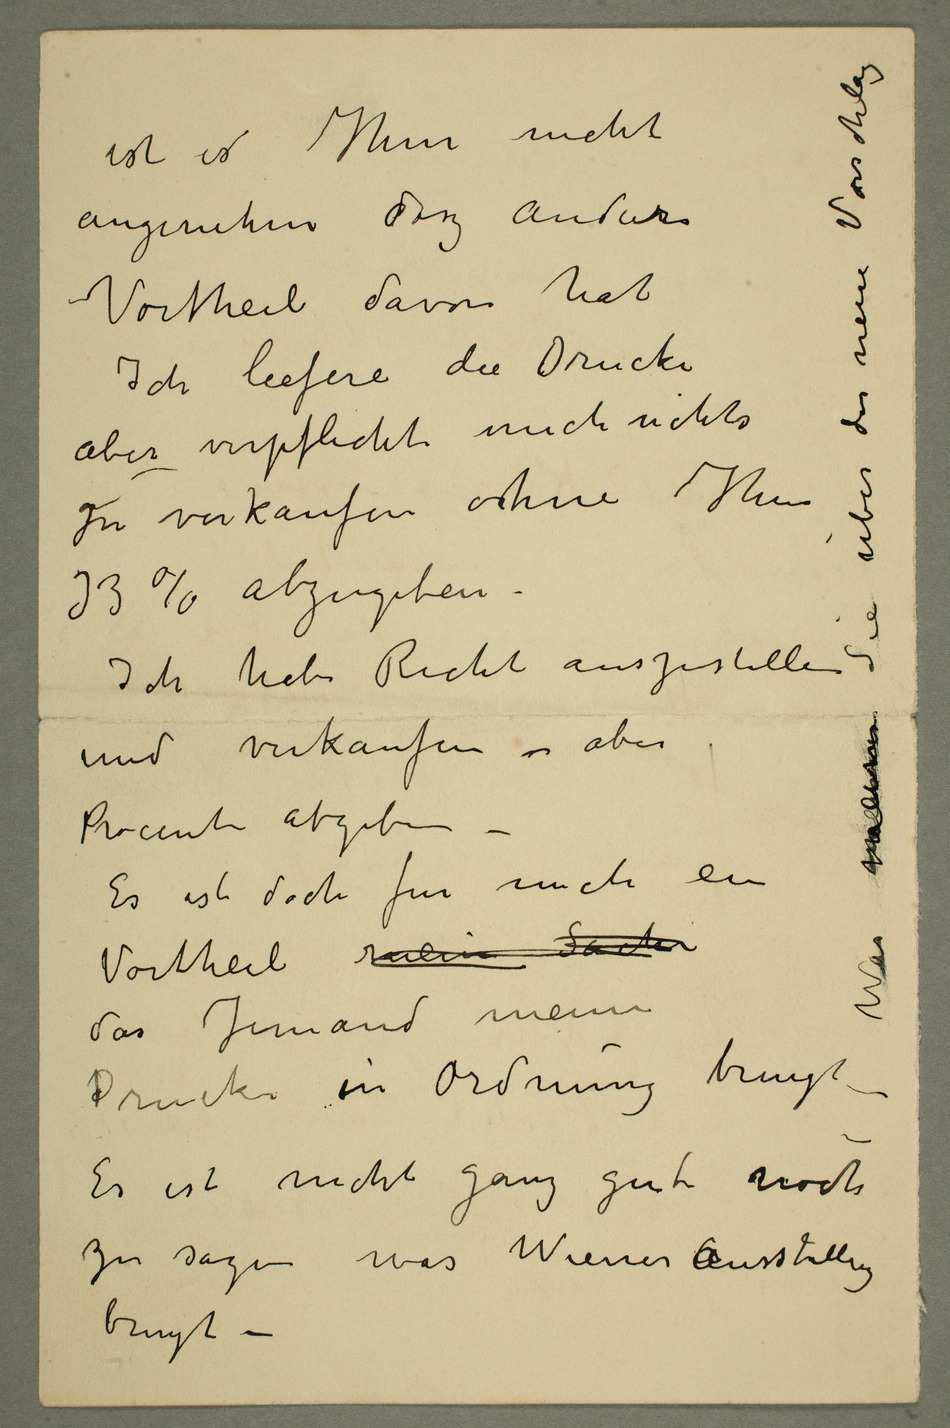 ist es Ihnen nicht
angenehm dasz andere
Vortheil davon hat
Ich liefere die Drucke
aber verpflichte mich nichts
zu verkaufen ohne Ihnen
33 % abzugeben -
Ich habe Recht auszustellen
und verkaufen – aber
Procente abgeben –
Es ist doch fur mich ein
Vortheil meine Sache
das Jemand meine
Drucke in Ordnung bringt –
Es ist nicht ganz gut noch
zu sagen was Wiener Ausstellung
bringt –
Was Sie über der neue Vorschlag